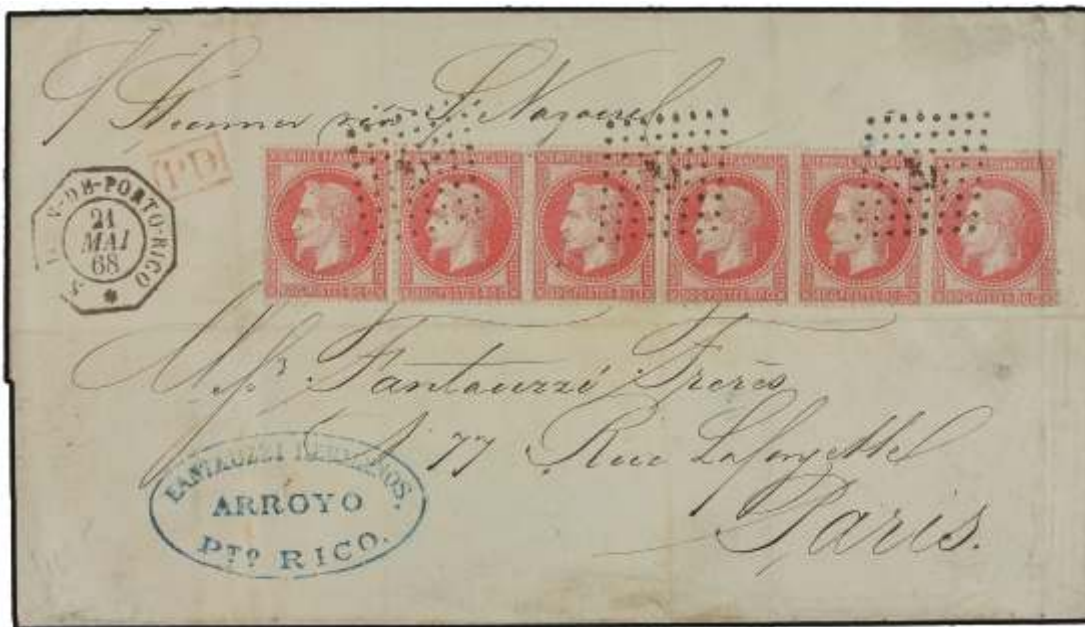 Steamer via St. Nazaire
PD
PORTO-RICO
21
MAI
68
POSTES
Fantauzzi Frères
77 Rue Lafayette
Paris.
FANTAUZZI HERMANOS.
ARROYO
PTO RICO.